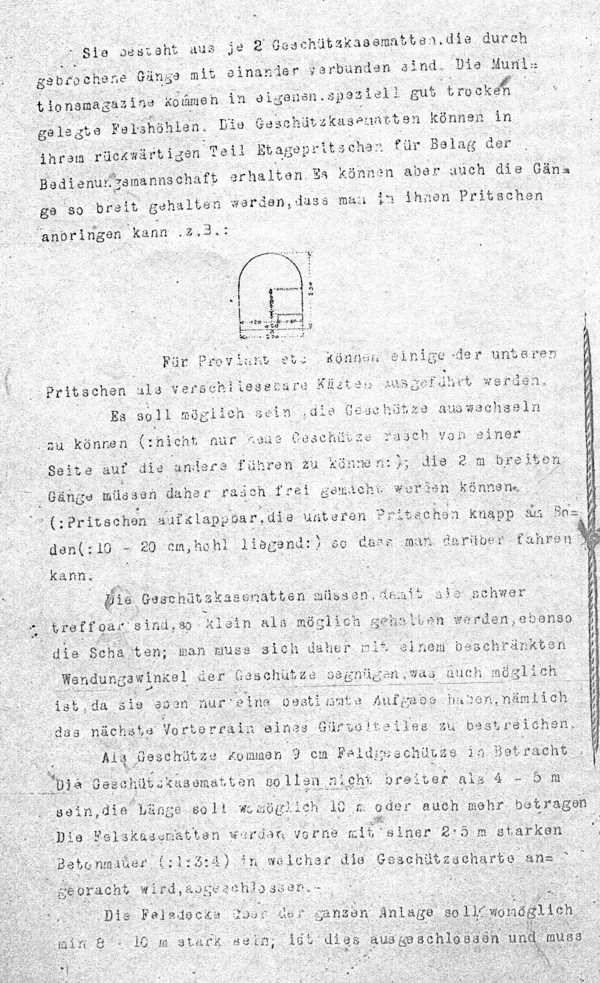 Sie besteht aus je 2 Geschützkasematten,die durch
gebrochene Gänge mit einander verbunden sind. Die Muni=
tionsmagazine kommen in eigenen,speziell gut trocken
gelegte Felshöhlen. Die Geschützkasematten können in
ihrem rückwärtigen Teil Etagepritschen für Belag der
Bedienungsmannschaft erhalten.Es können aber auch die Gän=
ge so breit gehalten werden,dass man in ihnen Pritschen
anbringen kann .z.B.:
Für Proviant etc können einige der unteren
Pritschen als verschliessbare Kästen ausgeführt werden.
Es soll möglich sein ,die Geschütze auswechseln
zu können (:nicht nur neue Geschütze rasch von einer
Seite auf die andere führen zu können:); die 2 m breiten
Gänge müssen daher rasch frei gemacht werden können.
(:Pritschen aufklappbar,die unteren Pritschen knapp am Bo=
den(:10 - 20 cm,hohl liegend:) so dass man darüber fahren
kann.
Die Geschützkasematten müssen,damit sie schwer
treffbar sind,so klein als möglich gehalten werden,ebenso
die Scha ten; man muss sich daher mit einem beschränkten
Wendungswinkel der Geschütze begnügen,was auch möglich
ist,da sie eben nur eine bestimmte Aufgabe haben,nämlich
das nächste Vorterrain eines Gürtelteiles zu bestreichen.
Als Geschütze kommen 9 cm Feldgeschütze in Betracht
Die Geschützkasematten sollen nicht breiter als 4 - 5 m
sein,die Länge soll womöglich 10 m oder auch mehr betragen
Die Felskasematten werden vorne mit einer 2·5 m starken
Betonmauer (:1:3:4) in welcher die Geschützscharte an=
gebracht wird,abgeschlossen.-
Die Felsdecke über der ganzen Anlage soll womöglich
min 8 - 10 m stark sein; ist dies ausgeschlossen und muss